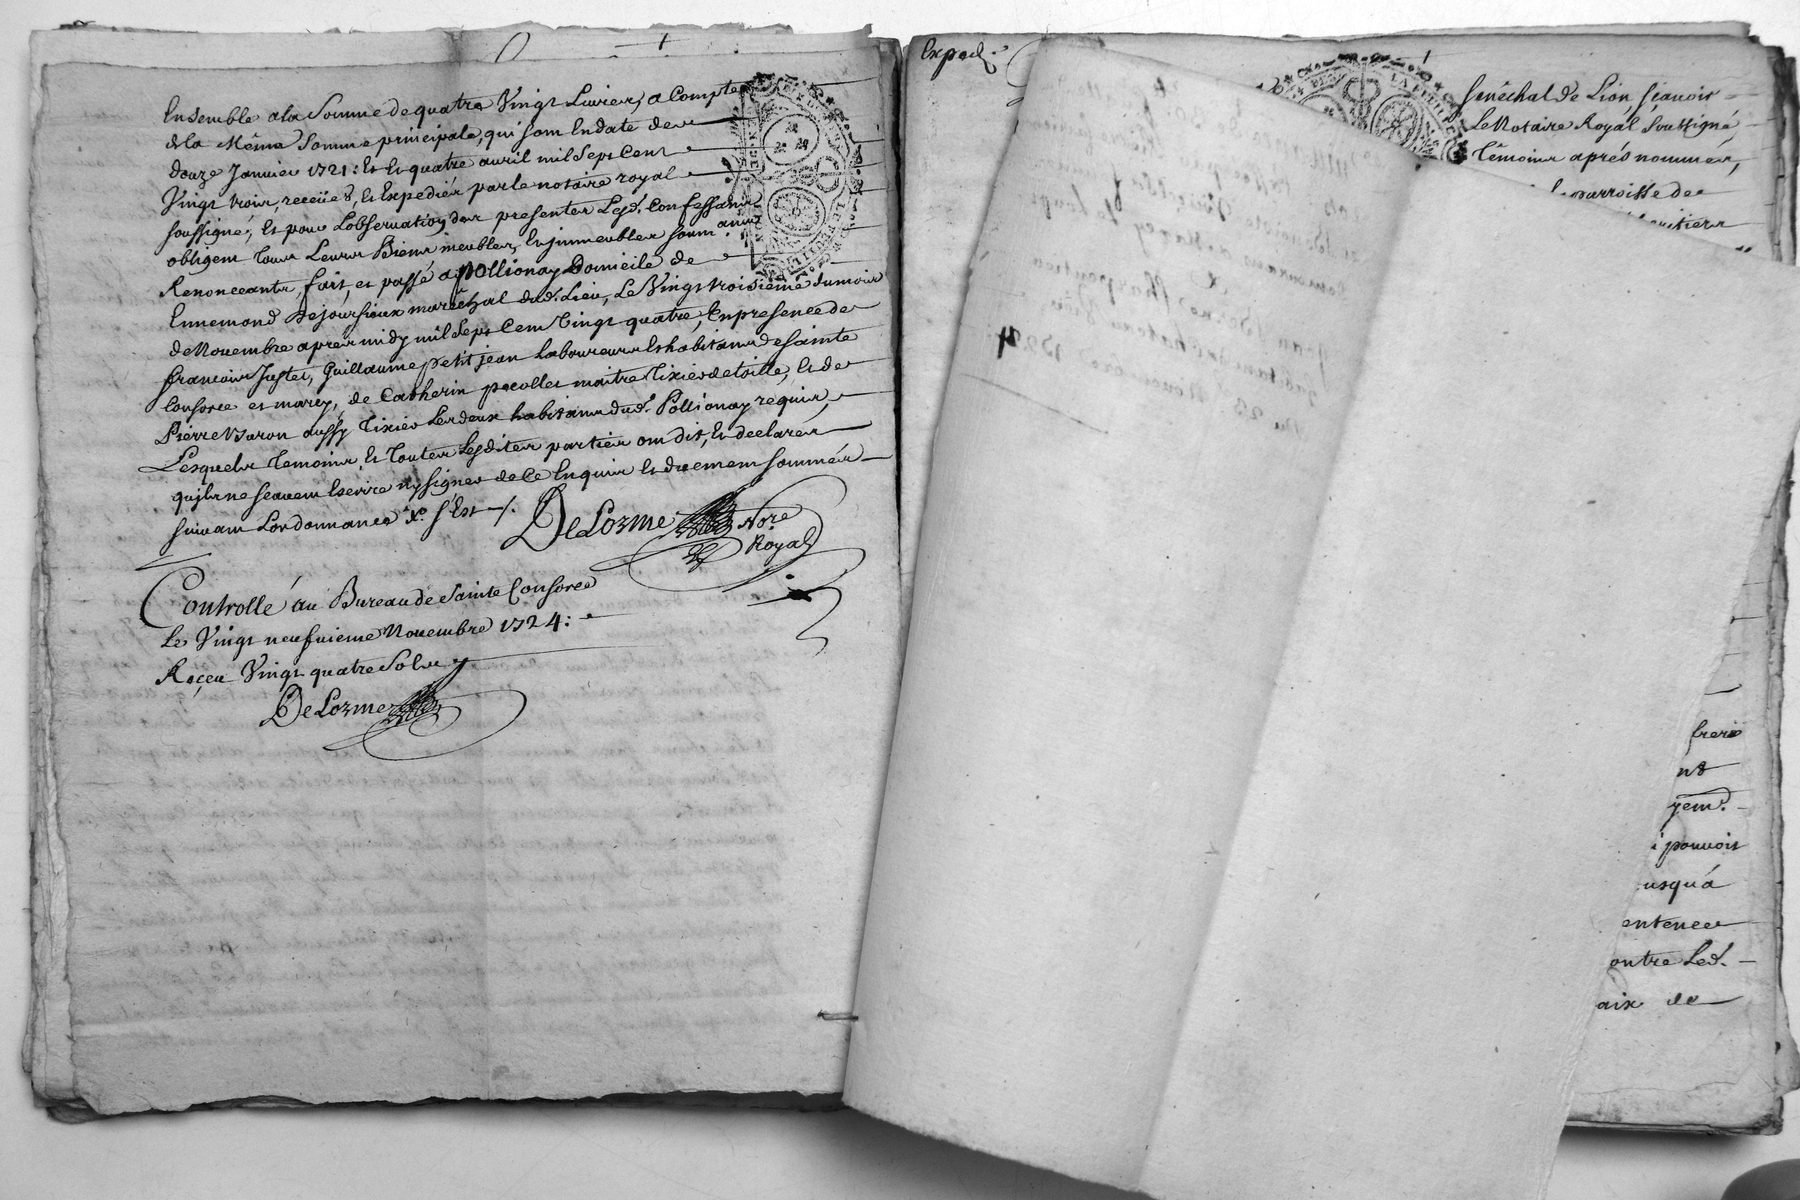 Ensemble a la Somme de quatre Vingt Livres, a Compte
de la Même Somme principale, qui sont En date de
douze Janvier 1721: Et le quatre avril mil Sept Cent
Vingt trois, receües, Et Expediés par le notaire royal
soussigné; Et pour L'observation des presentes Lesd. Confessants
obligent tous Leurs Biens meubles, Et immeubles soum.ons
Renonceants, fait, et passé a pollionay Domicile de
Ennemond Dejoursieux maréchal dud. Lieu, Le Vingt troisième du mois
de Novembre apres midy mil Sept Cent Vingt quatre, En presence de
francois Juftet, Guillaume petit jean Laboureurs Et habitants de sainte
Consorce et marcy, de Catherin pocollet maitre Tixier de toille, Et de
Pierre Varon aussy Tixier Les deux habitants dud. Pollionay requis,
Lesquels temoins Et toutes Lesdites parties ont dit, Et declarér
quils ne sçavent Escrire ny signer de Ce Enquis Et düement sommés
suivant L'ordonnance x.o s'Est ./.
DeLorme Nore
Royal
Controllé au Bureau de Sainte Consorce
Le Vingt neufuieme Novembre 1724:
Reçeu Vingt quatre Sols
DeLorme
Exped.
Senéchal de Lion, sçavoir
Le Notaire Royal Soussigné,
Témoins aprés nommés,
parroisse de
frere
nt
yem.
i pouvoit
usqu'á
entence
ontre Led.
aix de